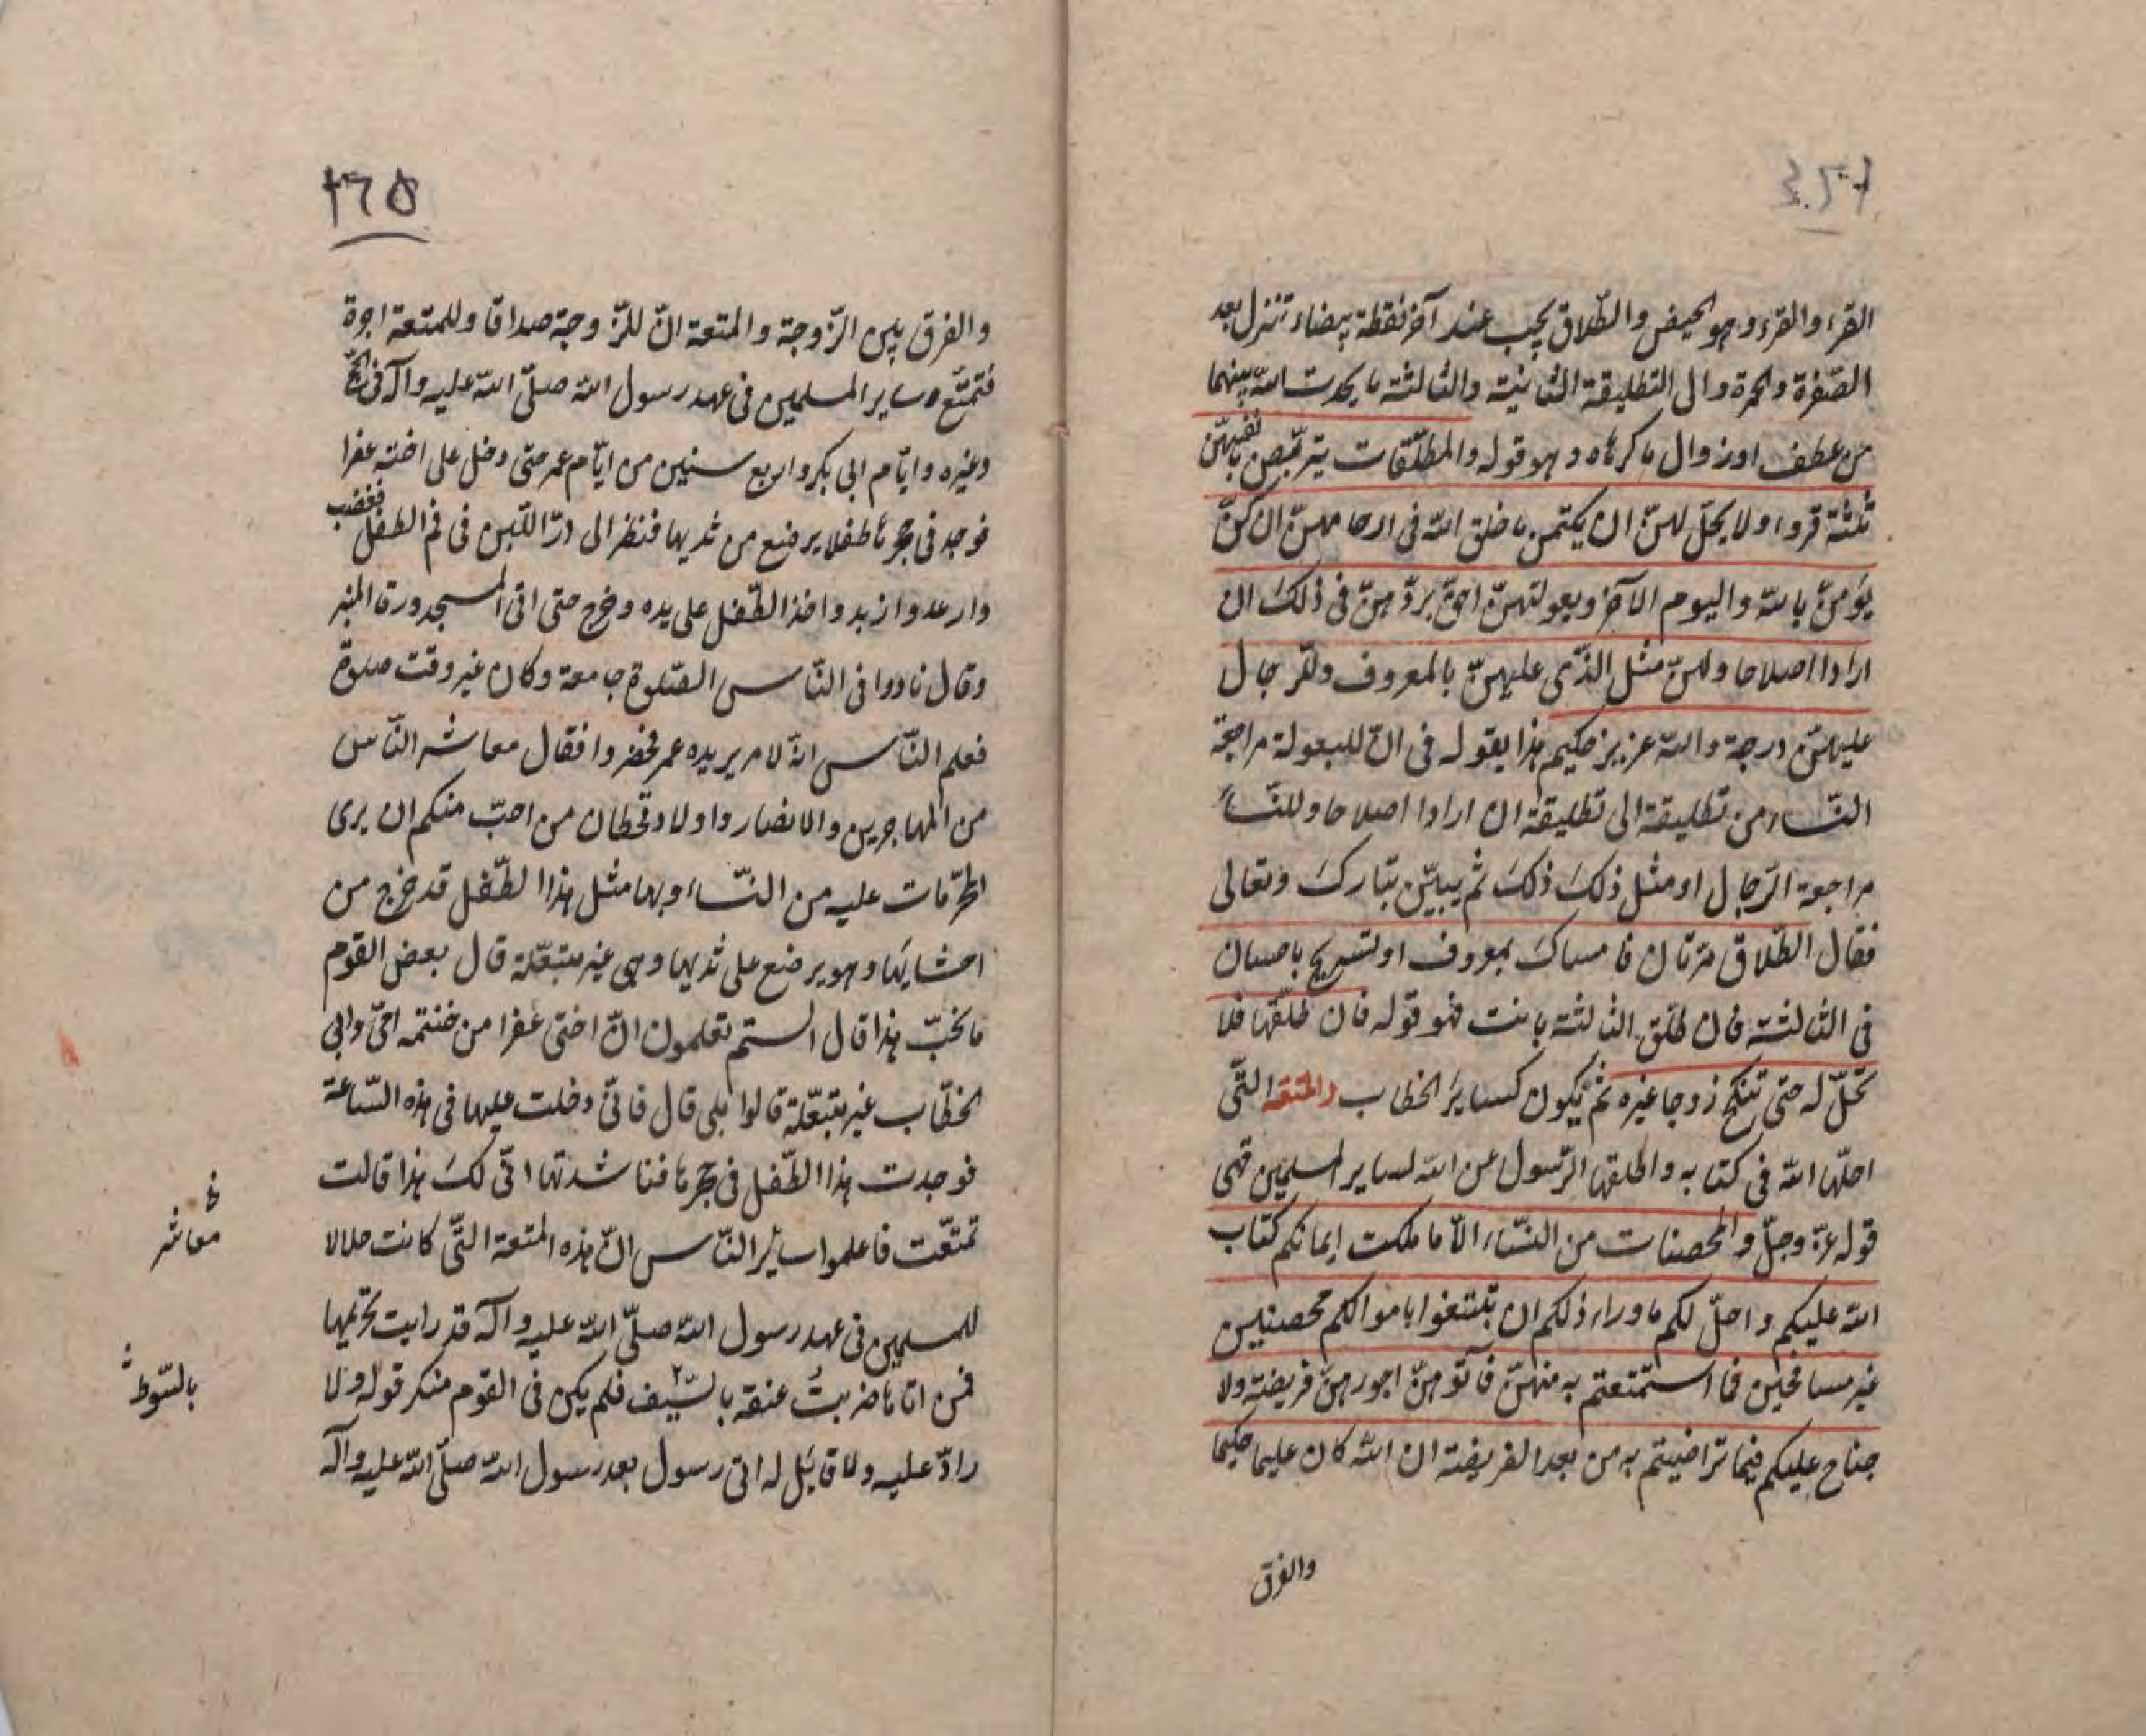 القرء والقرء وهو الحيض والطّلاق يجب عند آخر نقطة بيضاء تنزل بعد
الصّفرة والحمرة وال التطليقة الثانية والثالثة ما يحدث الله بينهما
من عطف اوزوال ما كرهاه وهو قوله والمطلّقات يتربّصن بانفسهنّ
ثلثة قروا ولا يحلّ لهنّ ان يكتمن ما خلق الله فى ارحامهنّ ان كنّ
يؤمنّ بالله واليوم الآخر وبعولتهنّ احقّ بردّهنّ فى ذلك ان
ارادا اصلاحا ولهنّ مثل الذّى عليهنّ بالمعروف وللرّجال
عليهنّ درجة والله عزيز حكيم هذا يقوله فى انّ للبعولة مراجعة
النّساء من تطليقة الى تطليقة ان ارادا اصلاحا وللنّساء
مراجعة الرّجال او مثل ذلك ذلك ثم يبيّن تبارك وتعالى
فقال الطّلاق مرّتان فامساك بمعروف او تسريح باحسان
فى الثالثة فان طلّق الثالثة بانت فهو قوله فان طلّقها فلا
تحلّ له حتى تنكح زوجا غيره ثم يكون كساير الخطاب والمتعة التّى
احلّها الله فى كتابه واطلقها الرّسول عن الله لساير المسلمين فهى
قوله عزّ وجلّ والمحصنات من النّساء الّا ما ملكت ايمانكم كتاب
الله عليكم واحلّ لكم ما وراء ذلكم ان تبتغوا باموالكم محصنين
غير مسافحين فما استمتعتم به منهنّ فآتوهنّ اجورهنّ فريضة ولا
جناح عليكم فيما تراضيتم به من بعد الفريضة ان الله كان عليما حكيما
والفرق
٣٦٥
والفرق بين الزّوجة والمتعة انّ للزّوجة صداقا وللمتعة اجرة
فتمتّع ساير المسلمين فى عهد رسول الله صلّى الله عليه وآله فى الحجّ
وغيره وايّام ابى بكر واربع سنين من ايّام عمر حتى دخل على اخته عفرا
فوجد فى حجرها طفلا يرضع من ثديها فنظر الى درّ اللّبن فى فم الطفل فغضب
وارعد وازبد واخذ الطّفل على يده وخرج حتى اتى المسجد ورقا المنبر
وقال نادوا فى النّاس الصّلوة جامعة وكان غير وقت صلوة
فعلم النّاس انّه لامر يريده عمر فحضروا فقال معاشر النّاس
من المهاجرين والانصار واولاد قحطان من احبّ منكم ان يرى
المحرّمات عليه من النّساء وبها مثل هذا الطّفل قد خرج من
احشايها وهو يرضع على ثديها وهى غير متبعّلة قال بعض القوم
ما نحبّ هذا قال الستم تعلمون انّ اختى عفرا من خنتمه امّى وابى
الخطّاب غير متبعّلة قالوا بلى قال فانّى دخلت عليها فى هذه السّاعة
فوجدت هذا الطّفل فى حجرها فناشدتها انّى لك هذا قالت
تمتّعت فاعلموا ساير النّاس انّ هذه المتعة التّى كانت حلالا
للمسلمين فى عهد رسول الله صلّى الله عليه وآله قد رايت تحريمها
فمن اتاها ضربت عنقه بالسّيف فلم يكن فى القوم منكر قوله ولا
رادّ عليه ولا قايل له اىّ رسول بعد رسول الله صلّى الله عليه وآله
معاشر
بالسّوط